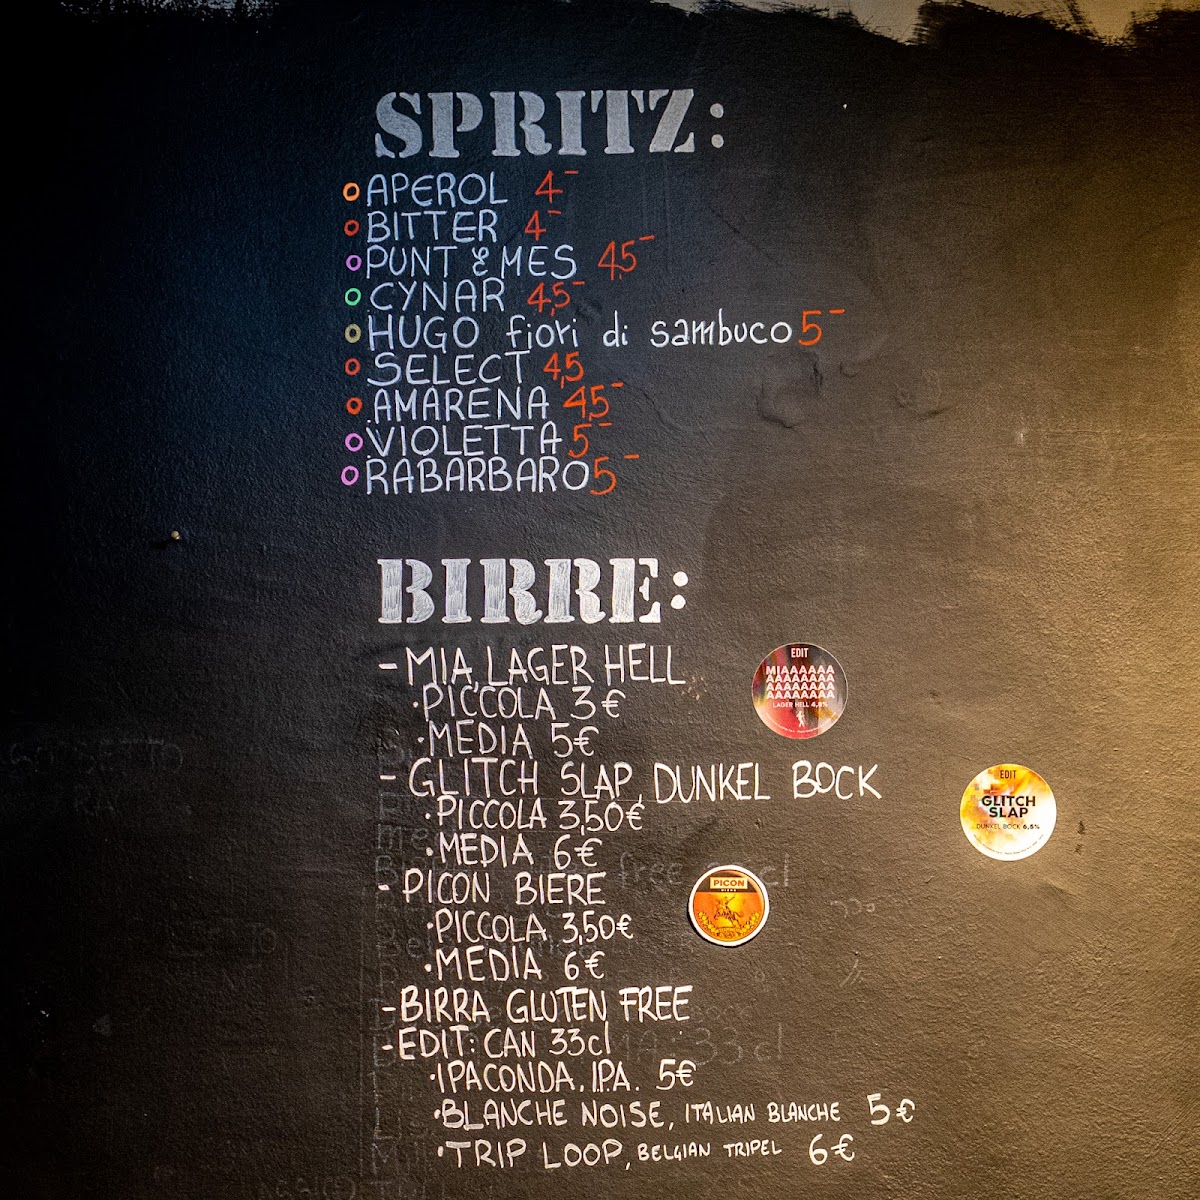 SPRITZ:
APEROL 4-
BITTER 4-
PUNT & MES 4,5-
CYNAR 4,5-
HUGO fiori di sambuco 5-
SELECT 4,5
AMARENA 4,5-
VIOLETTA 5-
RABARBARO 5-
BIRRE:
- MIA, LAGER HELL
EDIT
MIAAAAAA
AAAAAAAA
AAAAAAAA
AAAAAAAA
LAGER HELL 4,8%
·PICCOLA 3€
·MEDIA 5€
- GLITCH SLAP, DUNKEL BOCK
EDIT
GLITCH
SLAP
DUNKEL BOCK 6,5%
·PICCOLA 3,50€
·MEDIA 6€
- PICON BIERE
PICON
BIERE
·PICCOLA 3,50€
·MEDIA 6€
-BIRRA GLUTEN FREE
-EDIT: CAN 33cl
·IPACONDA, I.P.A. 5€
·BLANCHE NOISE, ITALIAN BLANCHE 5€
·TRIP LOOP, BELGIAN TRIPEL 6€